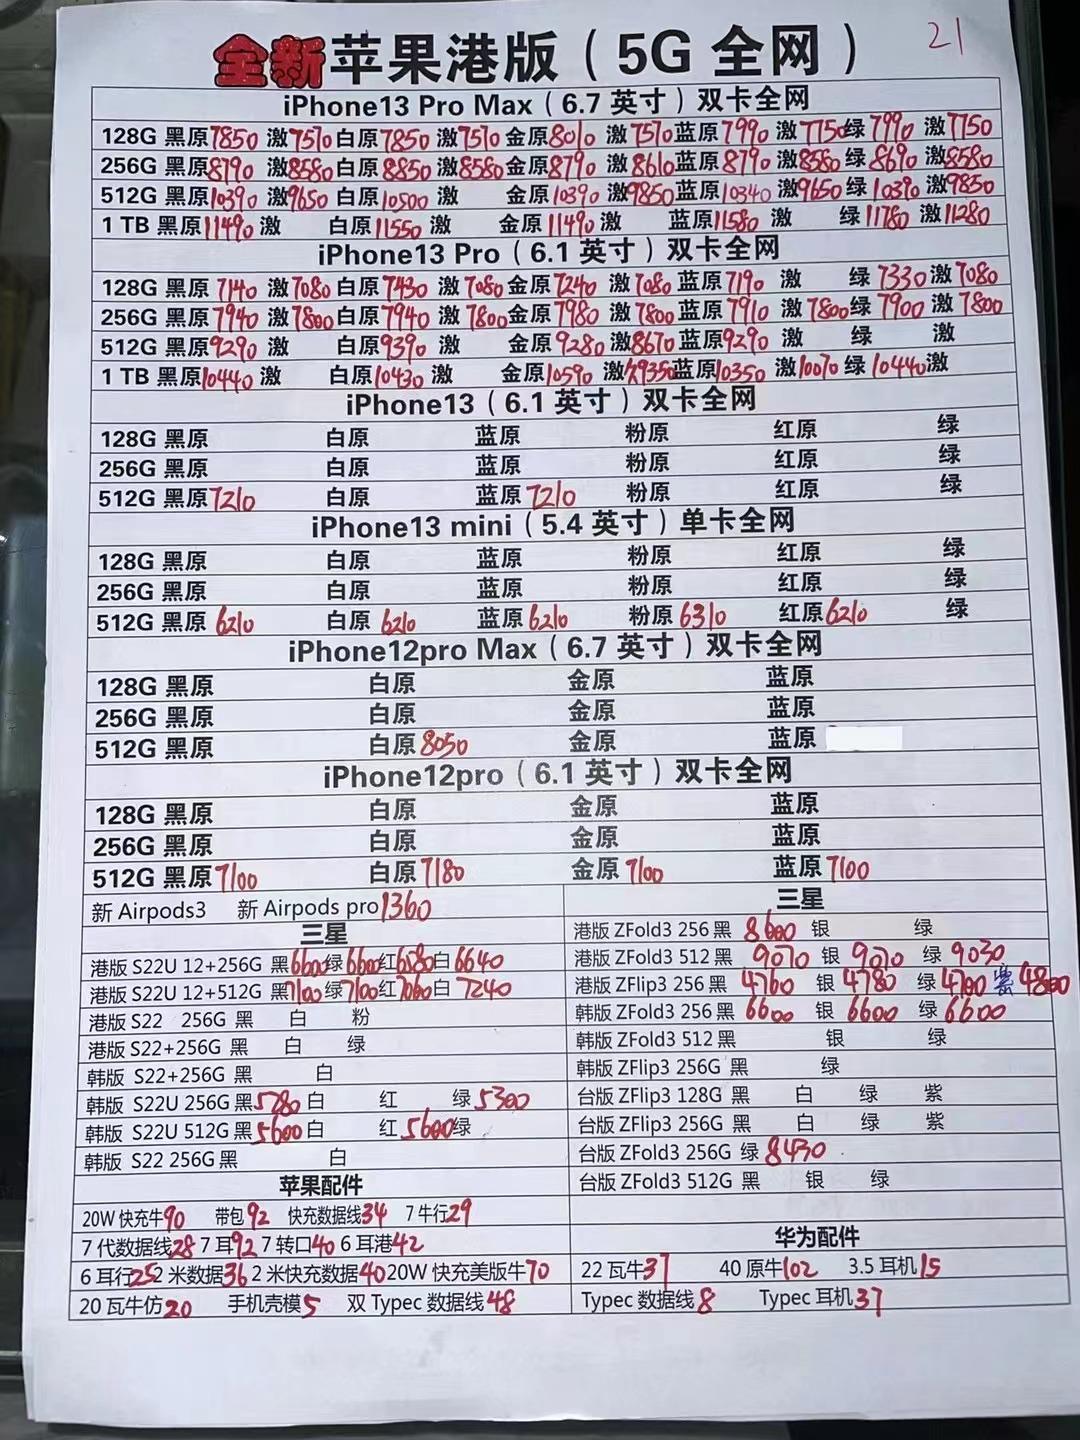 全新苹果港版（5G 全网） 21
iPhone13 Pro Max（6.7 英寸）双卡全网
128G 黑原7850 激7570 白原7850 激7570 金原8010 激7570 蓝原7990 激7750 绿7990 激7750
256G 黑原8790 激8580 白原8850 激8580 金原8790 激8610 蓝原8790 激8580 绿8690 激8580
512G 黑原10390 激9650 白原10500 激 金原10390 激9850 蓝原10340 激9650 绿10390 激9850
1 TB 黑原11490 激 白原11550 激 金原11490 激 蓝原11580 激 绿11780 激11280
iPhone13 Pro（6.1 英寸）双卡全网
128G 黑原7140 激7080 白原7430 激7080 金原7240 激7080 蓝原7190 激 绿7330 激7080
256G 黑原7940 激7800 白原7940 激7800 金原7980 激7800 蓝原7910 激7800 绿7900 激7800
512G 黑原9290 激 白原9390 激 金原9280 激8670 蓝原9290 激 绿 激
1 TB 黑原10440 激 白原10430 激 金原10590 激9350 蓝原10350 激10070 绿10440 激
iPhone13（6.1 英寸）双卡全网
128G 黑原 白原 蓝原 粉原 红原 绿
256G 黑原 白原 蓝原 粉原 红原 绿
512G 黑原7210 白原 蓝原7210 粉原 红原 绿
iPhone13 mini（5.4 英寸）单卡全网
128G 黑原 白原 蓝原 粉原 红原 绿
256G 黑原 白原 蓝原 粉原 红原 绿
512G 黑原6210 白原6210 蓝原6210 粉原6310 红原6210 绿
iPhone12pro Max（6.7 英寸）双卡全网
128G 黑原 白原 金原 蓝原
256G 黑原 白原 金原 蓝原
512G 黑原 白原8050 金原 蓝原
iPhone12pro（6.1 英寸）双卡全网
128G 黑原 白原 金原 蓝原
256G 黑原 白原 金原 蓝原
512G 黑原7100 白原7180 金原7100 蓝原7100
新 Airpods3 新 Airpods pro1360
三星
港版 S22U 12+256G 黑6600绿6600红6580白6640
港版 S22U 12+512G 黑7100绿7100红7060白7240
港版 S22 256G 黑 白 粉
港版 S22+256G 黑 白 绿
韩版 S22+256G 黑 白
韩版 S22U 256G黑5280白 红 绿5300
韩版 S22U 512G黑5600白 红5600绿
韩版 S22 256G黑 白
苹果配件
20W 快充牛90 带包92 快充数据线34 7 牛行29
7 代数据线28 7 耳92 7 转口40 6 耳港42
6 耳行25 2 米数据36 2 米快充数据40 20W 快充美版牛70
20 瓦牛仿20 手机壳模5 双 Typec 数据线48
三星
港版 ZFold3 256 黑8600 银 绿
港版 ZFold3 512 黑9070 银9070 绿9030
港版 ZFlip3 256 黑4760 银4780 绿4700 紫4800
韩版 ZFold3 256 黑6600 银6600 绿6600
韩版 ZFold3 512 黑 银 绿
韩版 ZFlip3 256G 黑 绿
台版 ZFlip3 128G 黑 白 绿 紫
台版 ZFlip3 256G 黑 白 绿 紫
台版 ZFold3 256G 绿8430
台版 ZFold3 512G 黑 银 绿
华为配件
22 瓦牛37 40 原牛102 3.5 耳机15
Typec 数据线8 Typec 耳机37